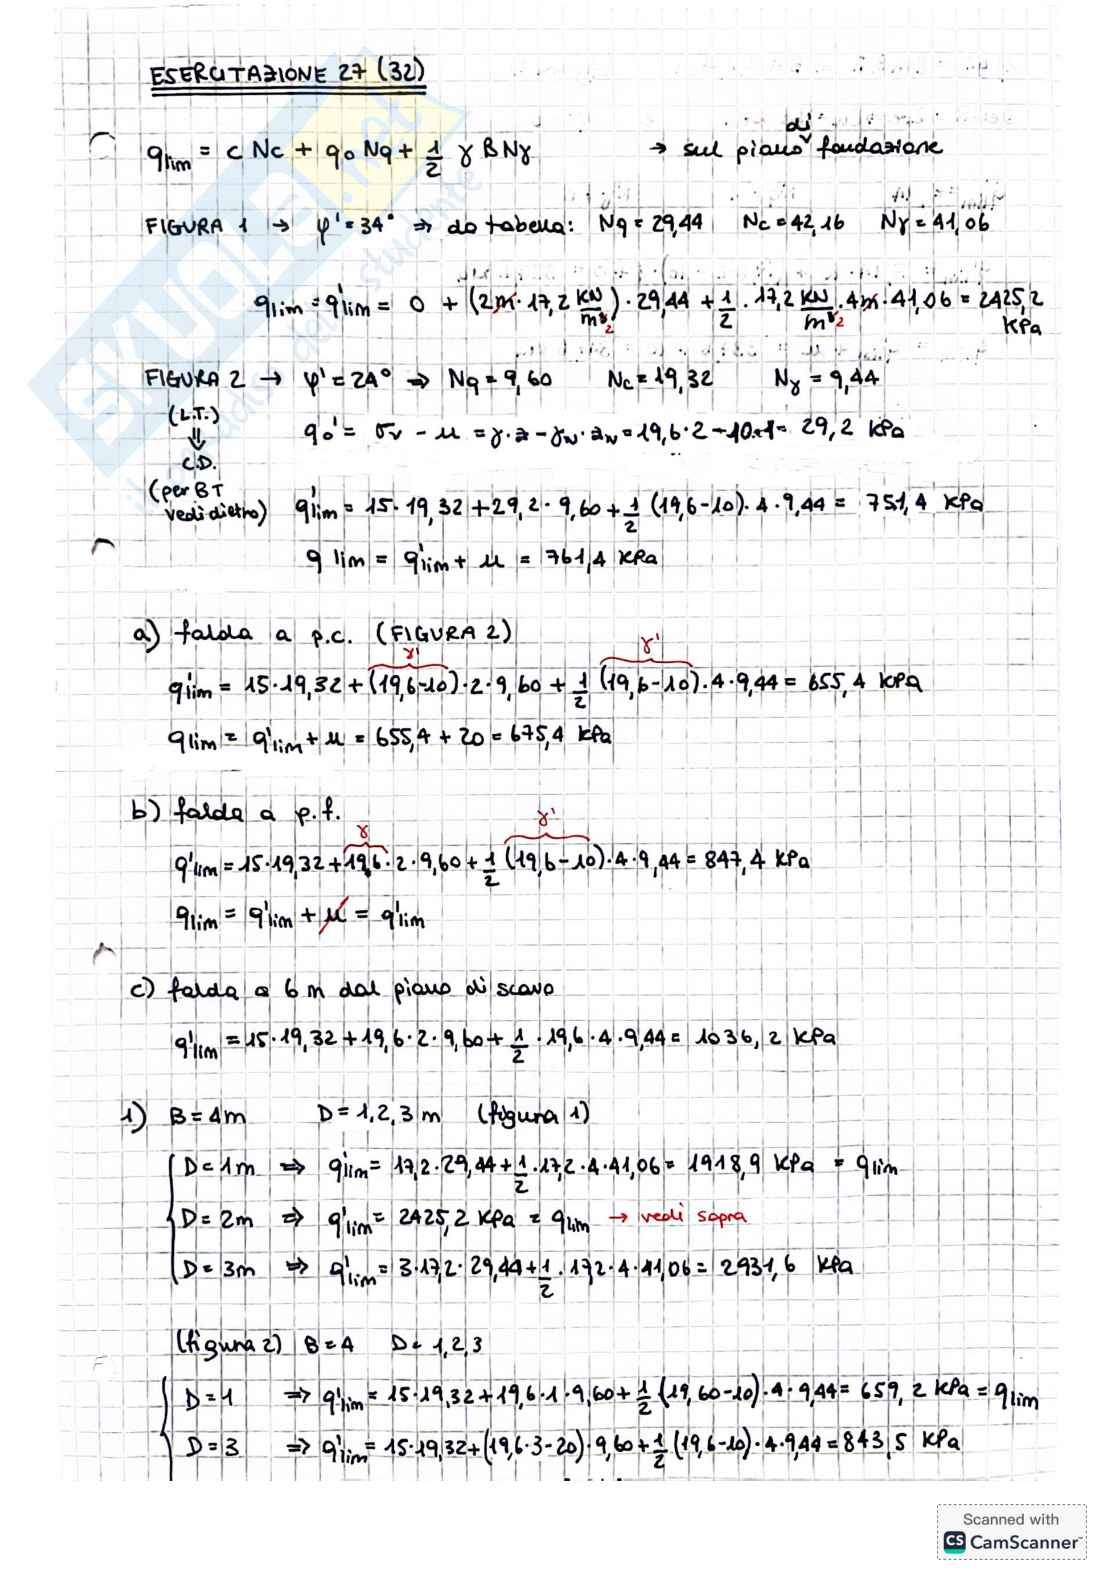 ESERCITAZIONE 27 (32)
qlim = c Nc + q0 Nq + 1/2 γ B Nγ → sul piano di fondazione
FIGURA 1 → φ' = 34° ⇒ da tabella: Nq = 29,44 Nc = 42,16 Nγ = 41,06
qlim = q'lim = 0 + (2m · 17,2 kN/m³2) · 29,44 + 1/2 · 17,2 kN/m³2 · 4m · 41,06 = 2425,2 kPa
FIGURA 2 → φ' = 24° ⇒ Nq = 9,60 Nc = 19,32 Nγ = 9,44
(L.T.)
⇓
C.D.
(per BT
vedi dietro)
q0' = σv - u = γ·z - γw·zw = 19,6·2 - 10·1 = 29,2 kPa
q'lim = 15·19,32 + 29,2·9,60 + 1/2 (19,6-10)·4·9,44 = 751,4 kPa
qlim = q'lim + u = 761,4 kPa
a) falda a p.c. (FIGURA 2)
γ' γ'
q'lim = 15·19,32 + (19,6-10)·2·9,60 + 1/2 (19,6-10)·4·9,44 = 655,4 kPa
qlim = q'lim + u = 655,4 + 20 = 675,4 kPa
b) falda a p.f.
γ γ'
q'lim = 15·19,32 + 19,6·2·9,60 + 1/2 (19,6-10)·4·9,44 = 847,4 kPa
qlim = q'lim + u = q'lim
c) falda a 6 m dal piano di scavo
q'lim = 15·19,32 + 19,6·2·9,60 + 1/2 · 19,6·4·9,44 = 1036,2 kPa
1) B = 4m D = 1,2,3 m (figura 1)
D = 1m ⇒ q'lim = 17,2·29,44 + 1/2 · 17,2·4·41,06 = 1918,9 kPa = qlim
D = 2m ⇒ q'lim = 2425,2 kPa = qlim → vedi sopra
D = 3m ⇒ q'lim = 3·17,2·29,44 + 1/2 · 17,2·4·41,06 = 2931,6 kPa
(figura 2) B = 4 D = 1,2,3
D = 1 ⇒ q'lim = 15·19,32 + 19,6·1·9,60 + 1/2 (19,60-10)·4·9,44 = 659,2 kPa = qlim
D = 3 ⇒ q'lim = 15·19,32 + (19,6·3-20)·9,60 + 1/2 (19,6-10)·4·9,44 = 843,5 kPa
Scanned with
CS CamScanner